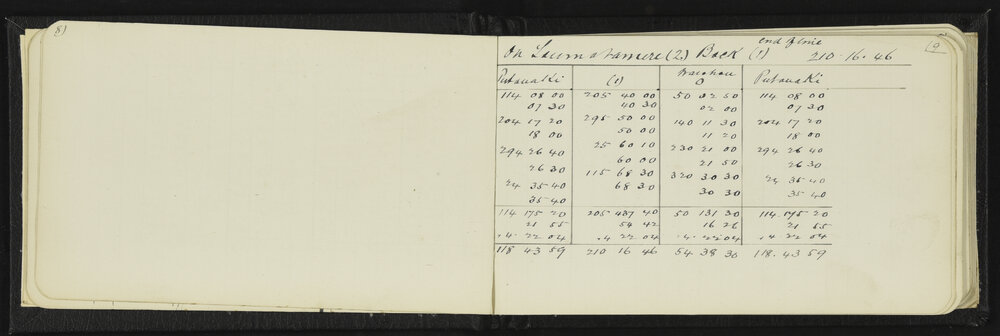 8)
end of line
On Taumatamere (2) Back (1) 210.16.46
(9
Putauaki (1) Waiohau Putauaki
0
114 08 00 205 40 00 50 02 50 114 08 00
07 30 40 30 02 00 07 30
204 17 20 295 50 00 140 11 30 204 17 20
18 00 50 00 11 20 18 00
294 26 40 25 60 10 230 21 00 294 26 40
26 30 60 00 21 50 26 30
24 35 40 115 68 30 320 30 30 24 35 40
35 40 68 30 30 30 35 40
114 175 20 205 437 40 50 131 30 114 175 20
21 55 54 42 16 26 21 55
.4 22 04 .4 22 04 .4. 22 04 .4. 22 04
118 43 59 210 16 46 54 38 30 118. 43 59